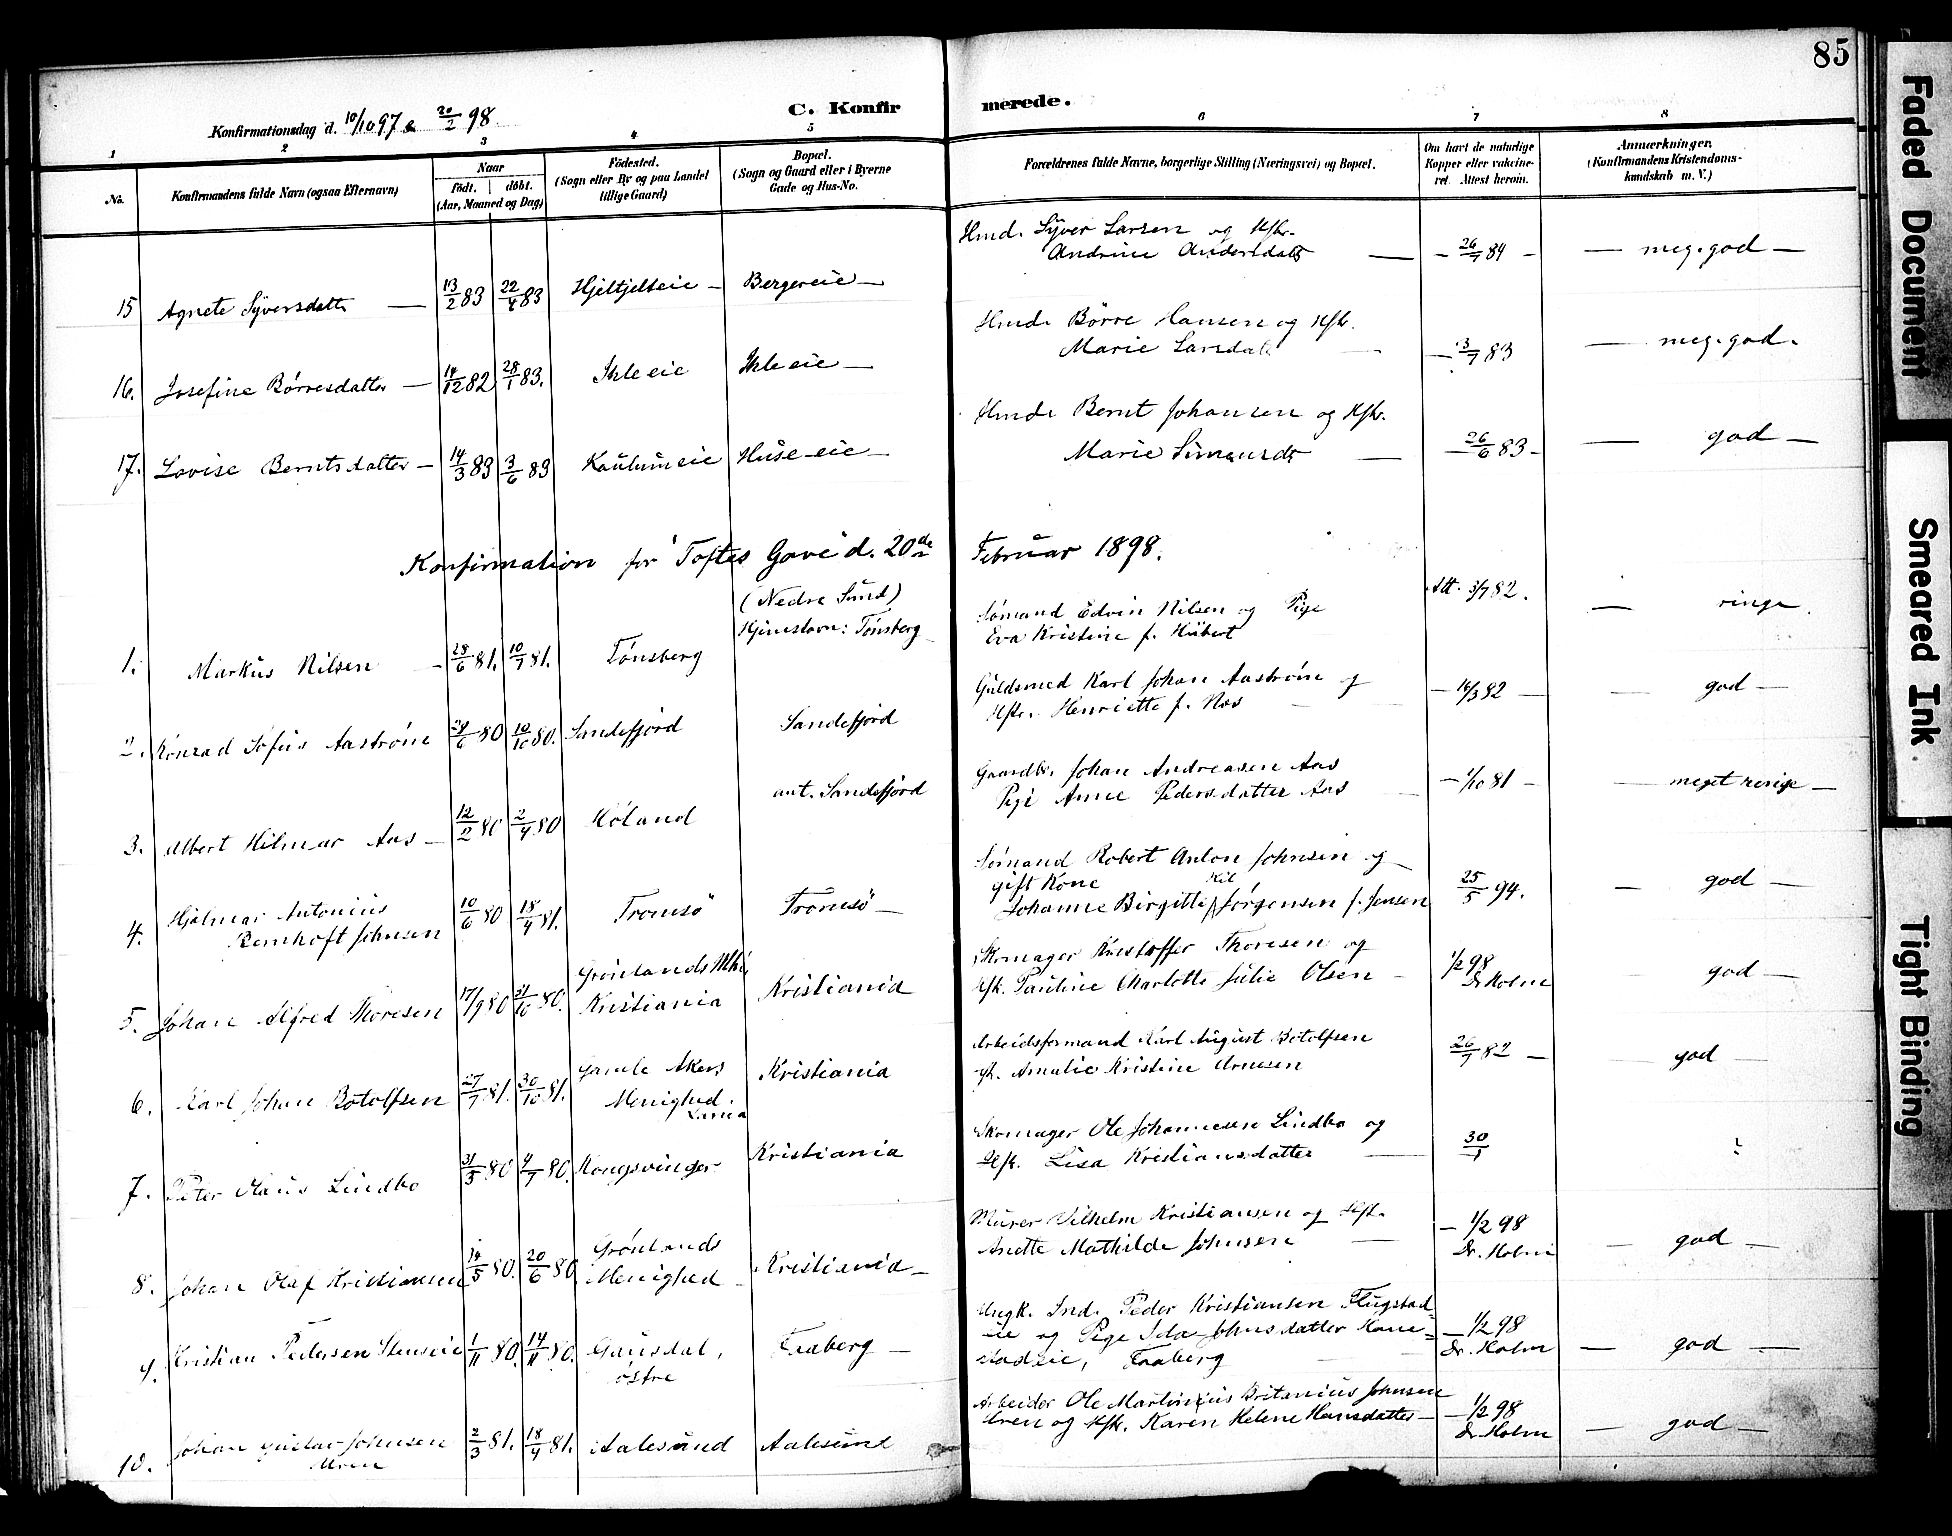 85
C. Konfirmerede.
Konfirmationsdag d. 10/10 97 & 20/2 98
1 2 3 4 5 6 7 8
No.
Konfirmandens fulde Navn (ogsaa Efternavn)
Naar
født. døbt.
(Aar, Maaned og Dag)
Fødested.
(Sogn eller By og paa Landet
tillige Gaard)
Bopæl.
(Sogn og Gaard eller i Byerne
Gade og Hus-No.
Forældrenes fulde Navne, borgerlige Stilling (Næringsvei) og Bopæl.
Om havt de naturlige
Kopper eller vaccine-
ret. Attest herom.
Anmærkninger.
(Konfirmandens Kristendoms-
kundskab m. V.)
Hmd. Syver Larsen og Hstr.
Andrine Andersdatt — 26/7 84 — meg. god —
15 Agnete Syversdatter — 13/2 83 22/4 83 Hjeltjelteie — Bergereie —
Hmd. Børre Hansen og Hstr.
Marie Larsdatt — 83 — meg. god.
16. Josefine Børresdatter — 14/12 82 28/1 83. Ihle eie Ihle eie —
Hmd. Bernt Johansen og Hstr.
Marie Simensdt — 26/6 83 — god —
17. Lovise Berntsdatter — 14/3 83 3/6 83 Huseeie —
Konfirmation for Toftes Gave d. 20de Februar 1898.
(Nedre Sund)
Hjemstavn: Tønsberg
Sømand Edvin Nilsen og Pige
Eva Kristine f. Hübert
Att. 3/7 82. — ringe.
1. Markus Nilsen — 28/6 81. 10/7 81. Tønsberg
Guldsmed Karl Johan Aastrøm og
Hstr. Henriette f. Næs — 14/3 82 — god —
2. Konrad Sofus Aastrøm 29/6 80 10/10 80. Sandefjord Sandefjord
Gaardbr. Johan Andreasen Aas
Pige Anne Pedersdatter Aas — 1/10 81 — meget ringe —
3. Albert Hilmar Aas — 12/2 80 2/4 80 Høland ant. Sandefjord
Sømand Robert Anton Johnsen og
gift Kone
Johanne Birgitte Jørgensen f. Jensen 25/5 94. — god —
4. Hjalmar Antonius
Bernhoft Johnsen 10/6 80 18/4 81. Tromsø Tromsø —
Skomager Kristoffer Thoresen og
Hstr. Pauline Charlotte Julie Olsen — 1/2 98
Dr Holm — god —
5. Johan Alfred Thoresen 17/9 80 31/10 80. Grønlands Mhd,
Kristiania Kristiania
Arbeidsformand Karl August Botolfsen
Amalie Kristine Arnesen 26/7 82 — god —
6. Karl Johan Botolfsen 27/7 81. 30/10 81. Gamle Akers
Menighed. Kristiania
Skomager Ole Johannesen Lindbo og
Hstr. Lisa Kristiansdatter — 30/1
7. Peter Olaus Lindbo 31/3 80 4/7 80. Kongsvinger Kristiania
Murer Vilhelm Kristiansen og Hstr.
Anette Mathilde Johnsen — 1/2 98
Dr. Holm — god —
8. Johan Olaf Kristiansen 14/5 80. 20/6 80 Grønlands
Menighed Kristiania —
Ungk. Ind. Peder Kristiansen Flugstad=
eie og Pige Ida Johnsdatter
Faaberg — 1/2 98
Dr. Holm — god —
9. Kristian Pedersen Stenseie 1/11 80. 14/11 80. Gausdal,
østre Faaberg —
Arbeider Ole Martinius Britanius Johnsen
Uren og Hstr. Karen Helene Hansdatter — 1/2 98
Dr. Holm — god —
10. Johan Gustav Johnsen
Uren 2/3 81. 18/4 81. Aalesund Aalesund
Faded Document
Smeared Ink
Tight Binding